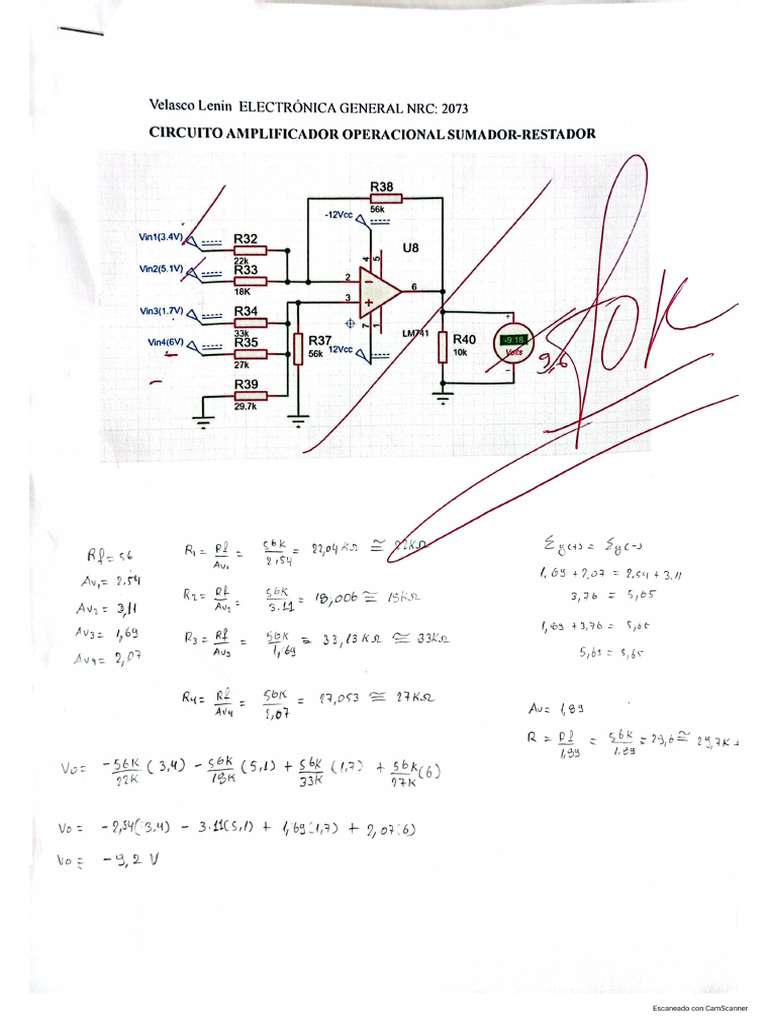 Velasco Lenin ELECTRÓNICA GENERAL NRC: 2073
CIRCUITO AMPLIFICADOR OPERACIONAL SUMADOR-RESTADOR
R38
56k
-12Vcc
U8
Vin1(3.4V)
R32
22k
Vin2(5.1V)
R33
18K
4
5
2
6
3
7
1
LM741
Vin3(1.7V)
R34
33k
Vin4(6V)
R35
27k
R37
56k
12Vcc
R40
10k
-9.18
Volts
R39
29.7k
9,6
OK
Rf = 56
Av1 = 2.54
Av2 = 3,11
Av3 = 1,69
Av4 = 2,07
R1 = Rf/Av1 = 56K/2.54 = 22,04 KΩ ≅ 22KΩ
R2 = Rf/Av2 = 56K/3.11 = 18,006 ≅ 18KΩ
R3 = Rf/Av3 = 56K/1,69 = 33,13 KΩ ≅ 33KΩ
R4 = Rf/Av4 = 56K/2,07 = 27,053 ≅ 27KΩ
Σy(+) = Σy(-)
1,69 + 2,07 = 2,54 + 3,11
3,76 = 5,65
1,89 + 3,76 = 5,65
5,65 = 5,65
Av = 1,89
R = Rf/1,89 = 56K/1.89 = 29,6 ≅ 29,7K
Vo = -56K/22K (3,4) - 56K/18K (5,1) + 56K/33K (1,7) + 56K/27K (6)
Vo = -2,54(3,4) - 3.11(5,1) + 1,69(1,7) + 2,07(6)
Vo = -9,2 V
Escaneado con CamScanner